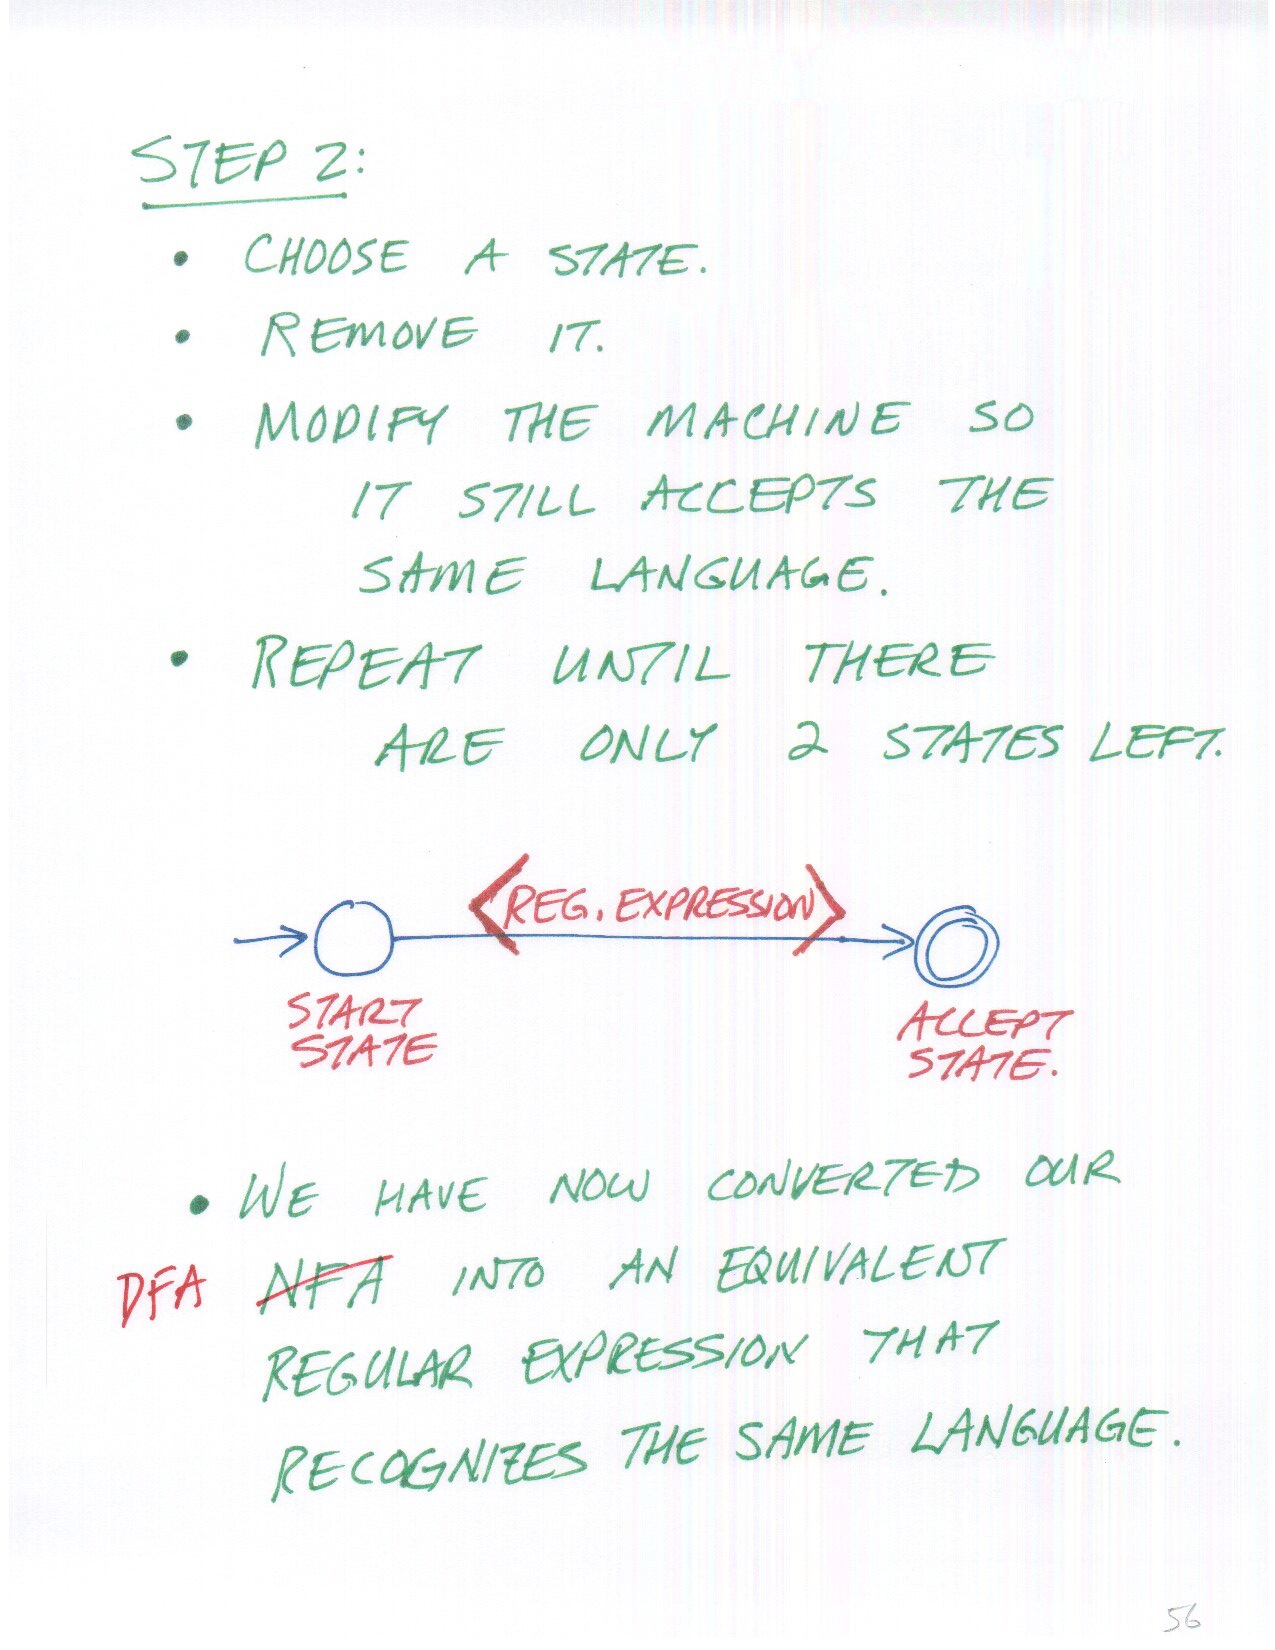 STEP 2:
• CHOOSE A STATE.
• REMOVE IT.
• MODIFY THE MACHINE SO
IT STILL ACCEPTS THE
SAME LANGUAGE.
• REPEAT UNTIL THERE
ARE ONLY 2 STATES LEFT.
<REG. EXPRESSION>
START
STATE
ACCEPT
STATE.
• WE HAVE NOW CONVERTED OUR
DFA NFA INTO AN EQUIVALENT
REGULAR EXPRESSION THAT
RECOGNIZES THE SAME LANGUAGE.
56